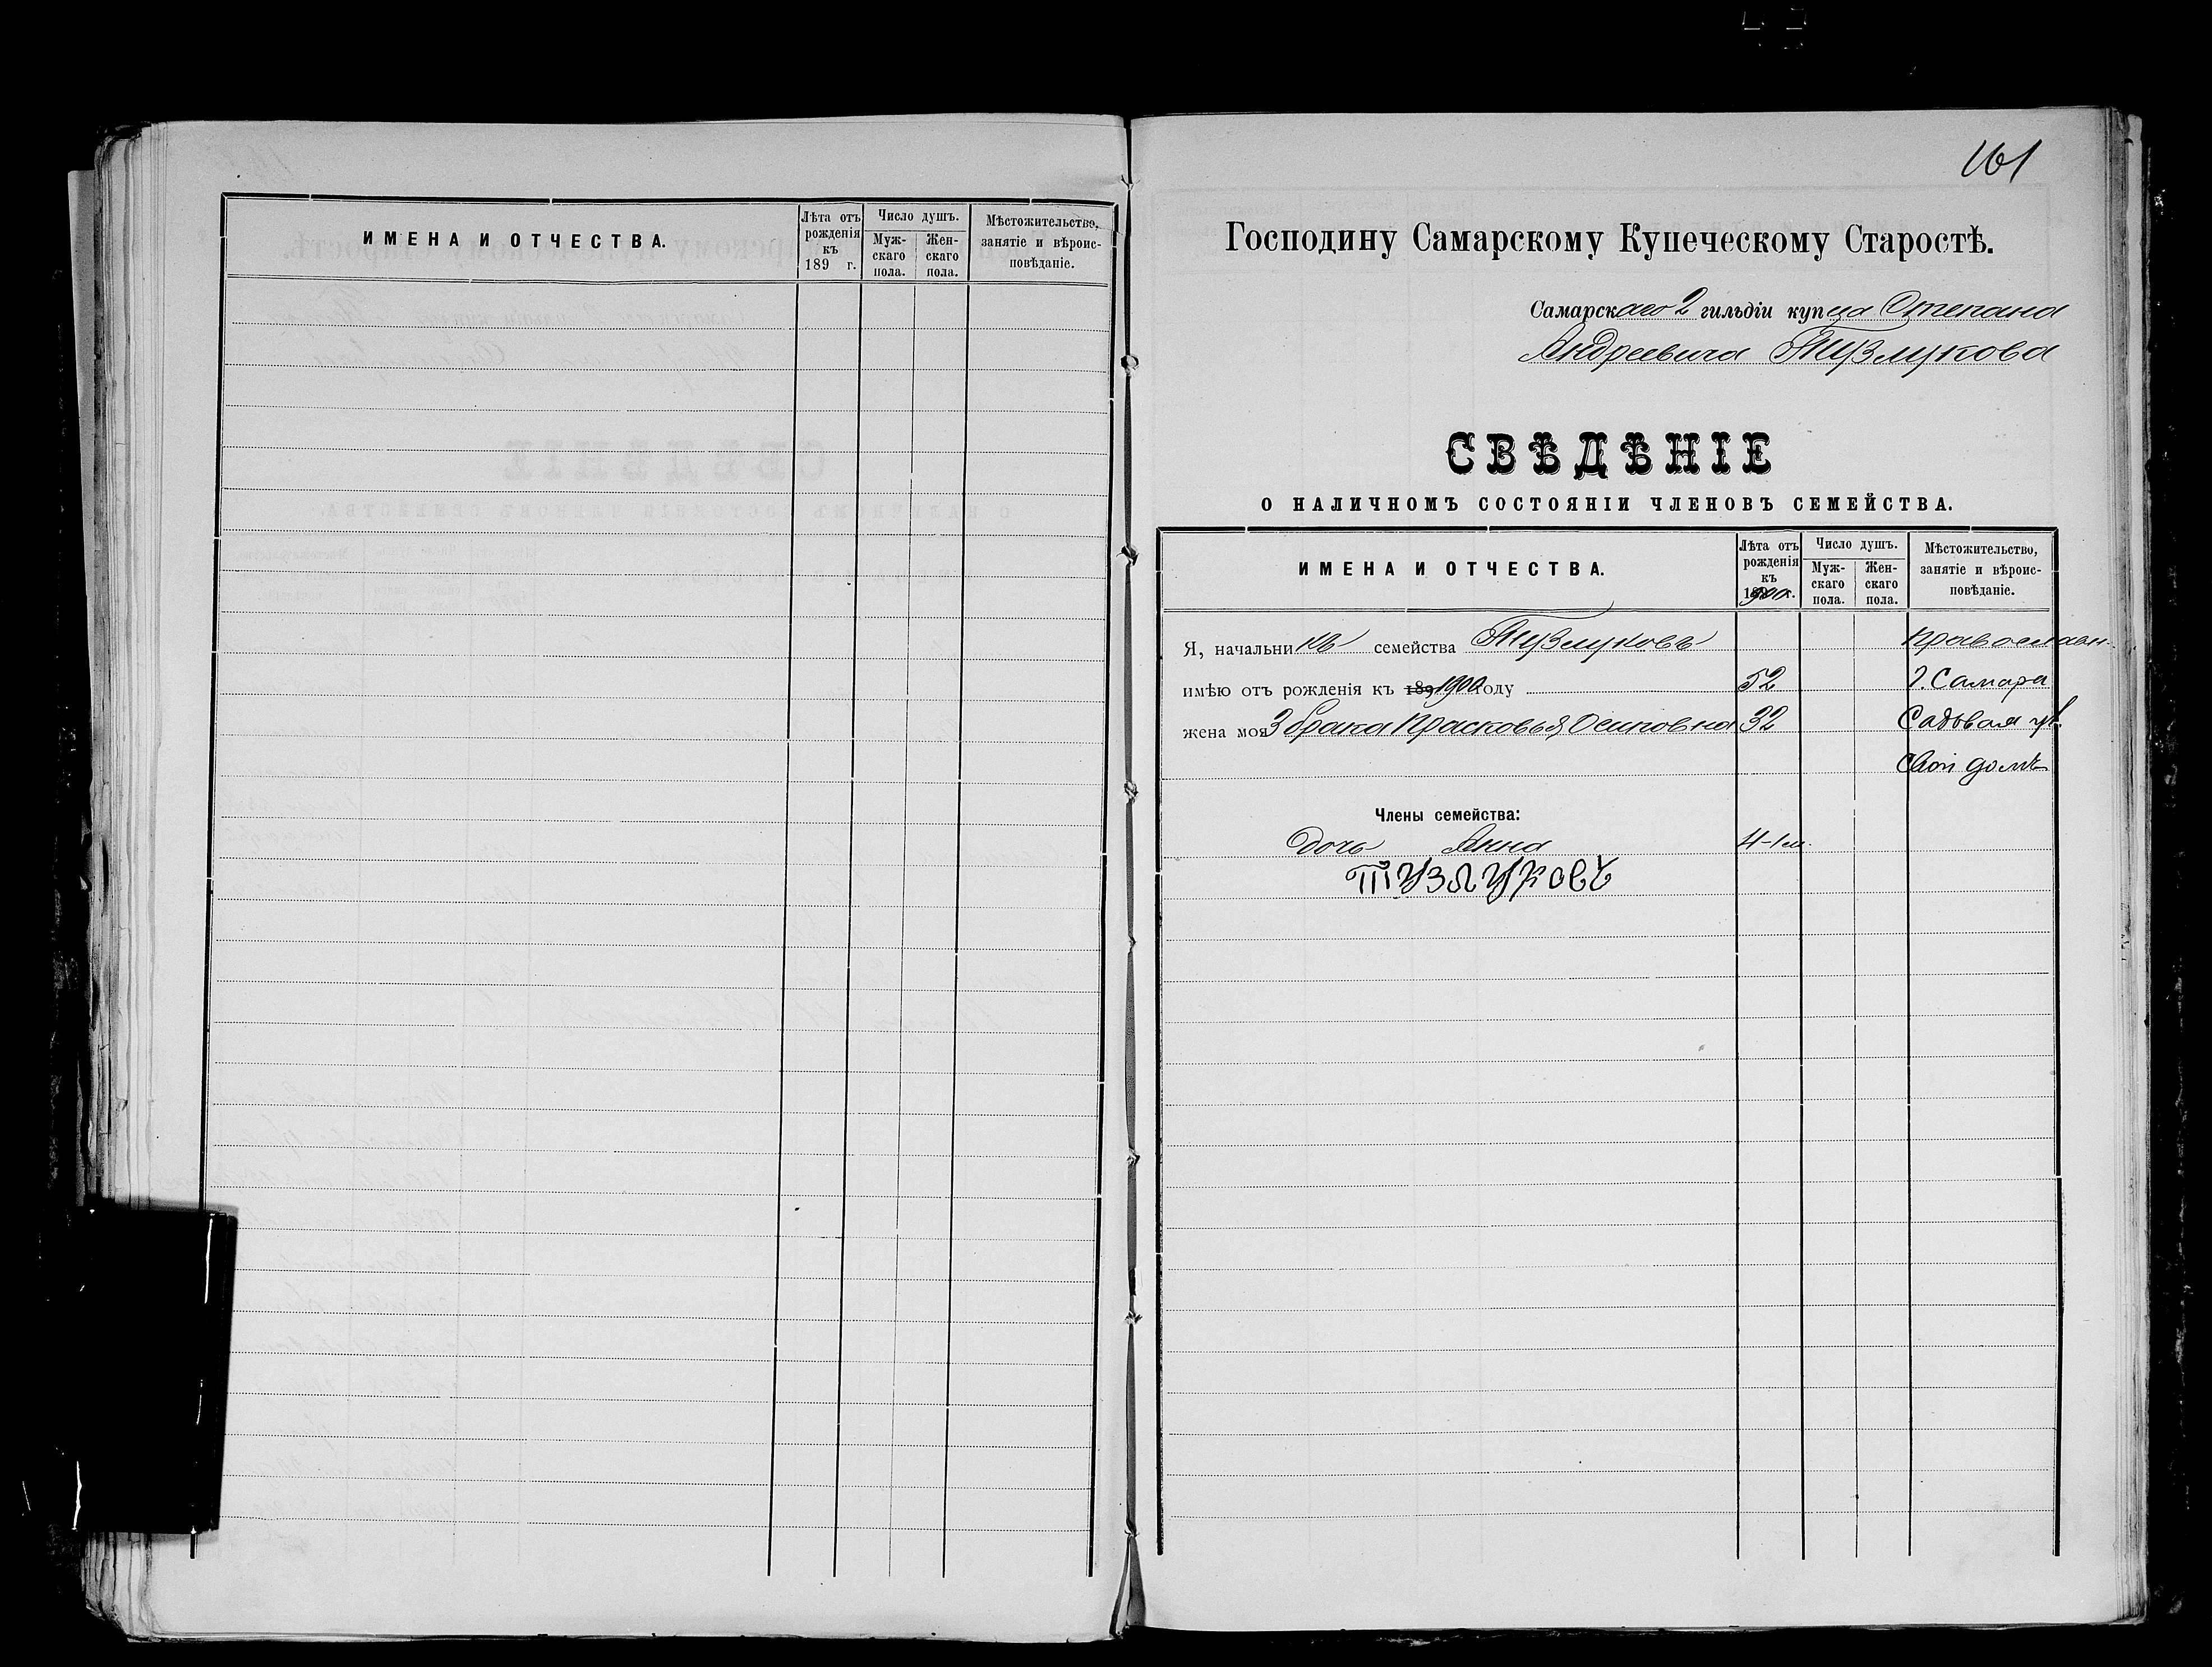 ИМЕНА И ОТЧЕСТВА.
Лѣта отъ рожденія къ 189 г.
Число душъ.
Мужскаго пола.
Женскаго пола.
Мѣстожительство, занятіе и вѣроисповѣданіе.
161
Господину Самарскому Купеческому Старостѣ.
Самарскаго 2 гильдіи купца Степана
Андреевича Тузлукова
СВѢДѢНІЕ
О НАЛИЧНОМЪ СОСТОЯНІИ ЧЛЕНОВЪ СЕМЕЙСТВА.
ИМЕНА И ОТЧЕСТВА.
Лѣта отъ рожденія къ 1900 г.
Число душъ.
Мужскаго пола.
Женскаго пола.
Мѣстожительство, занятіе и вѣроисповѣданіе.
Я, начальникъ семейства Тузлуковъ Православн.
имѣю отъ рожденія къ 189 1900 году 52 г. Самара
жена моя 3 брака Прасковья Осиповна 32 Садовая ул.
Свой домъ
Члены семейства:
Дочь Анна 4-1м.
Тузлуковъ